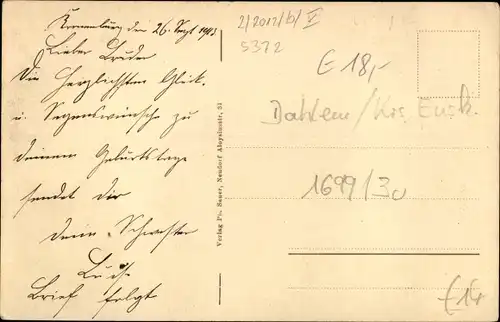 den 26. Sept 1913
Lieber Bruder
Die herzlichsten Glück.
u. Segenswünsche zu
deinem Geburtstage
sendet dir
dein Schwester
Brief folgt
Verlag Fr. Sauer, Neudorf Aloysiusstr. 31
2/2012/b/V
5372
€ 18,-
Dahlem / Krs. Eusk.
1699/30
€14